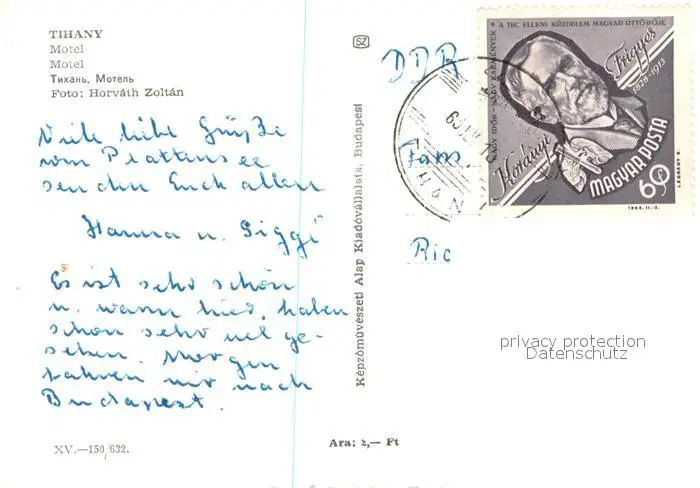 TIHANY
Motel
Motel
Тихань, Мотель
Foto: Horváth Zoltán
Viele liebe Grüße
vom Plattensee
senden Euch allen
Hanna u. Siggi
Es ist sehr schön
u. warm hier, haben
schon sehr viel ge-
sehen. Morgen
fahren wir nach
Budapest.
XV.—150/632.
Ara: 2,— Ft
Képzőművészeti Alap Kiadóvállalata, Budapest
SZ
DDR
Fam.
Ric
A TBC ELLENI KÜZDELEM MAGYAR ÚTTÖRŐJE
NAGY IDŐK - NAGY ESEMÉNYEK
Frigyes
1828-1913
Korányi
MAGYAR POSTA
60
LÉGRÁDY S.
TIHANY
privacy protection
Datenschutz